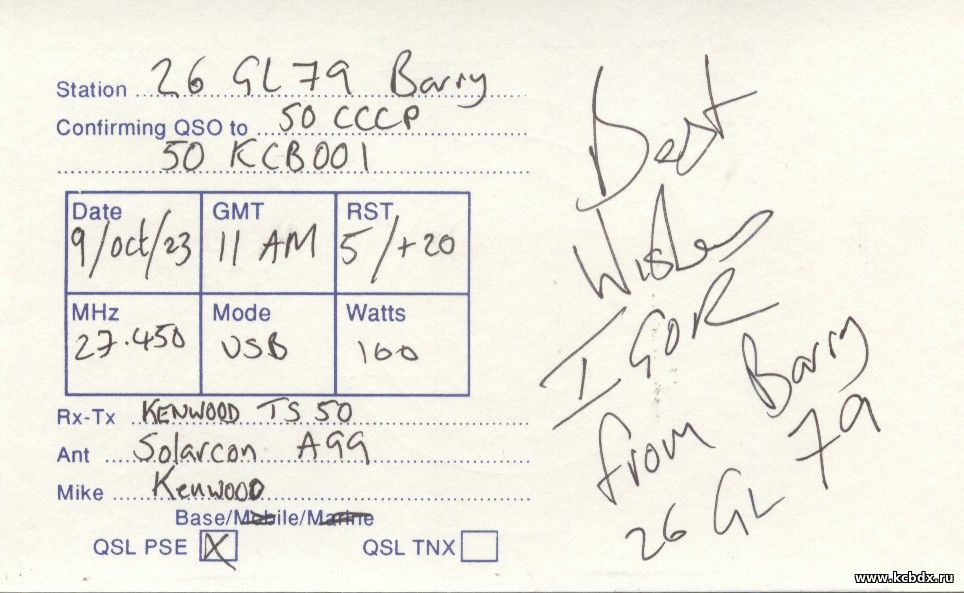 Station 26 GL79 Barry
Confirming QSO to 50 CCCP
50 KCB001
Date GMT RST
9/Oct/23 11 AM 5/+20
MHz Mode Watts
27.450 USB 100
Rx-Tx KENWOOD TS 50
Ant Solarcon A99
Mike Kenwood
Base/Mobile/Marine
QSL PSE X QSL TNX
Best
Wishes
IGOR
from Barry
26 GL 79
www.kcbdx.ru